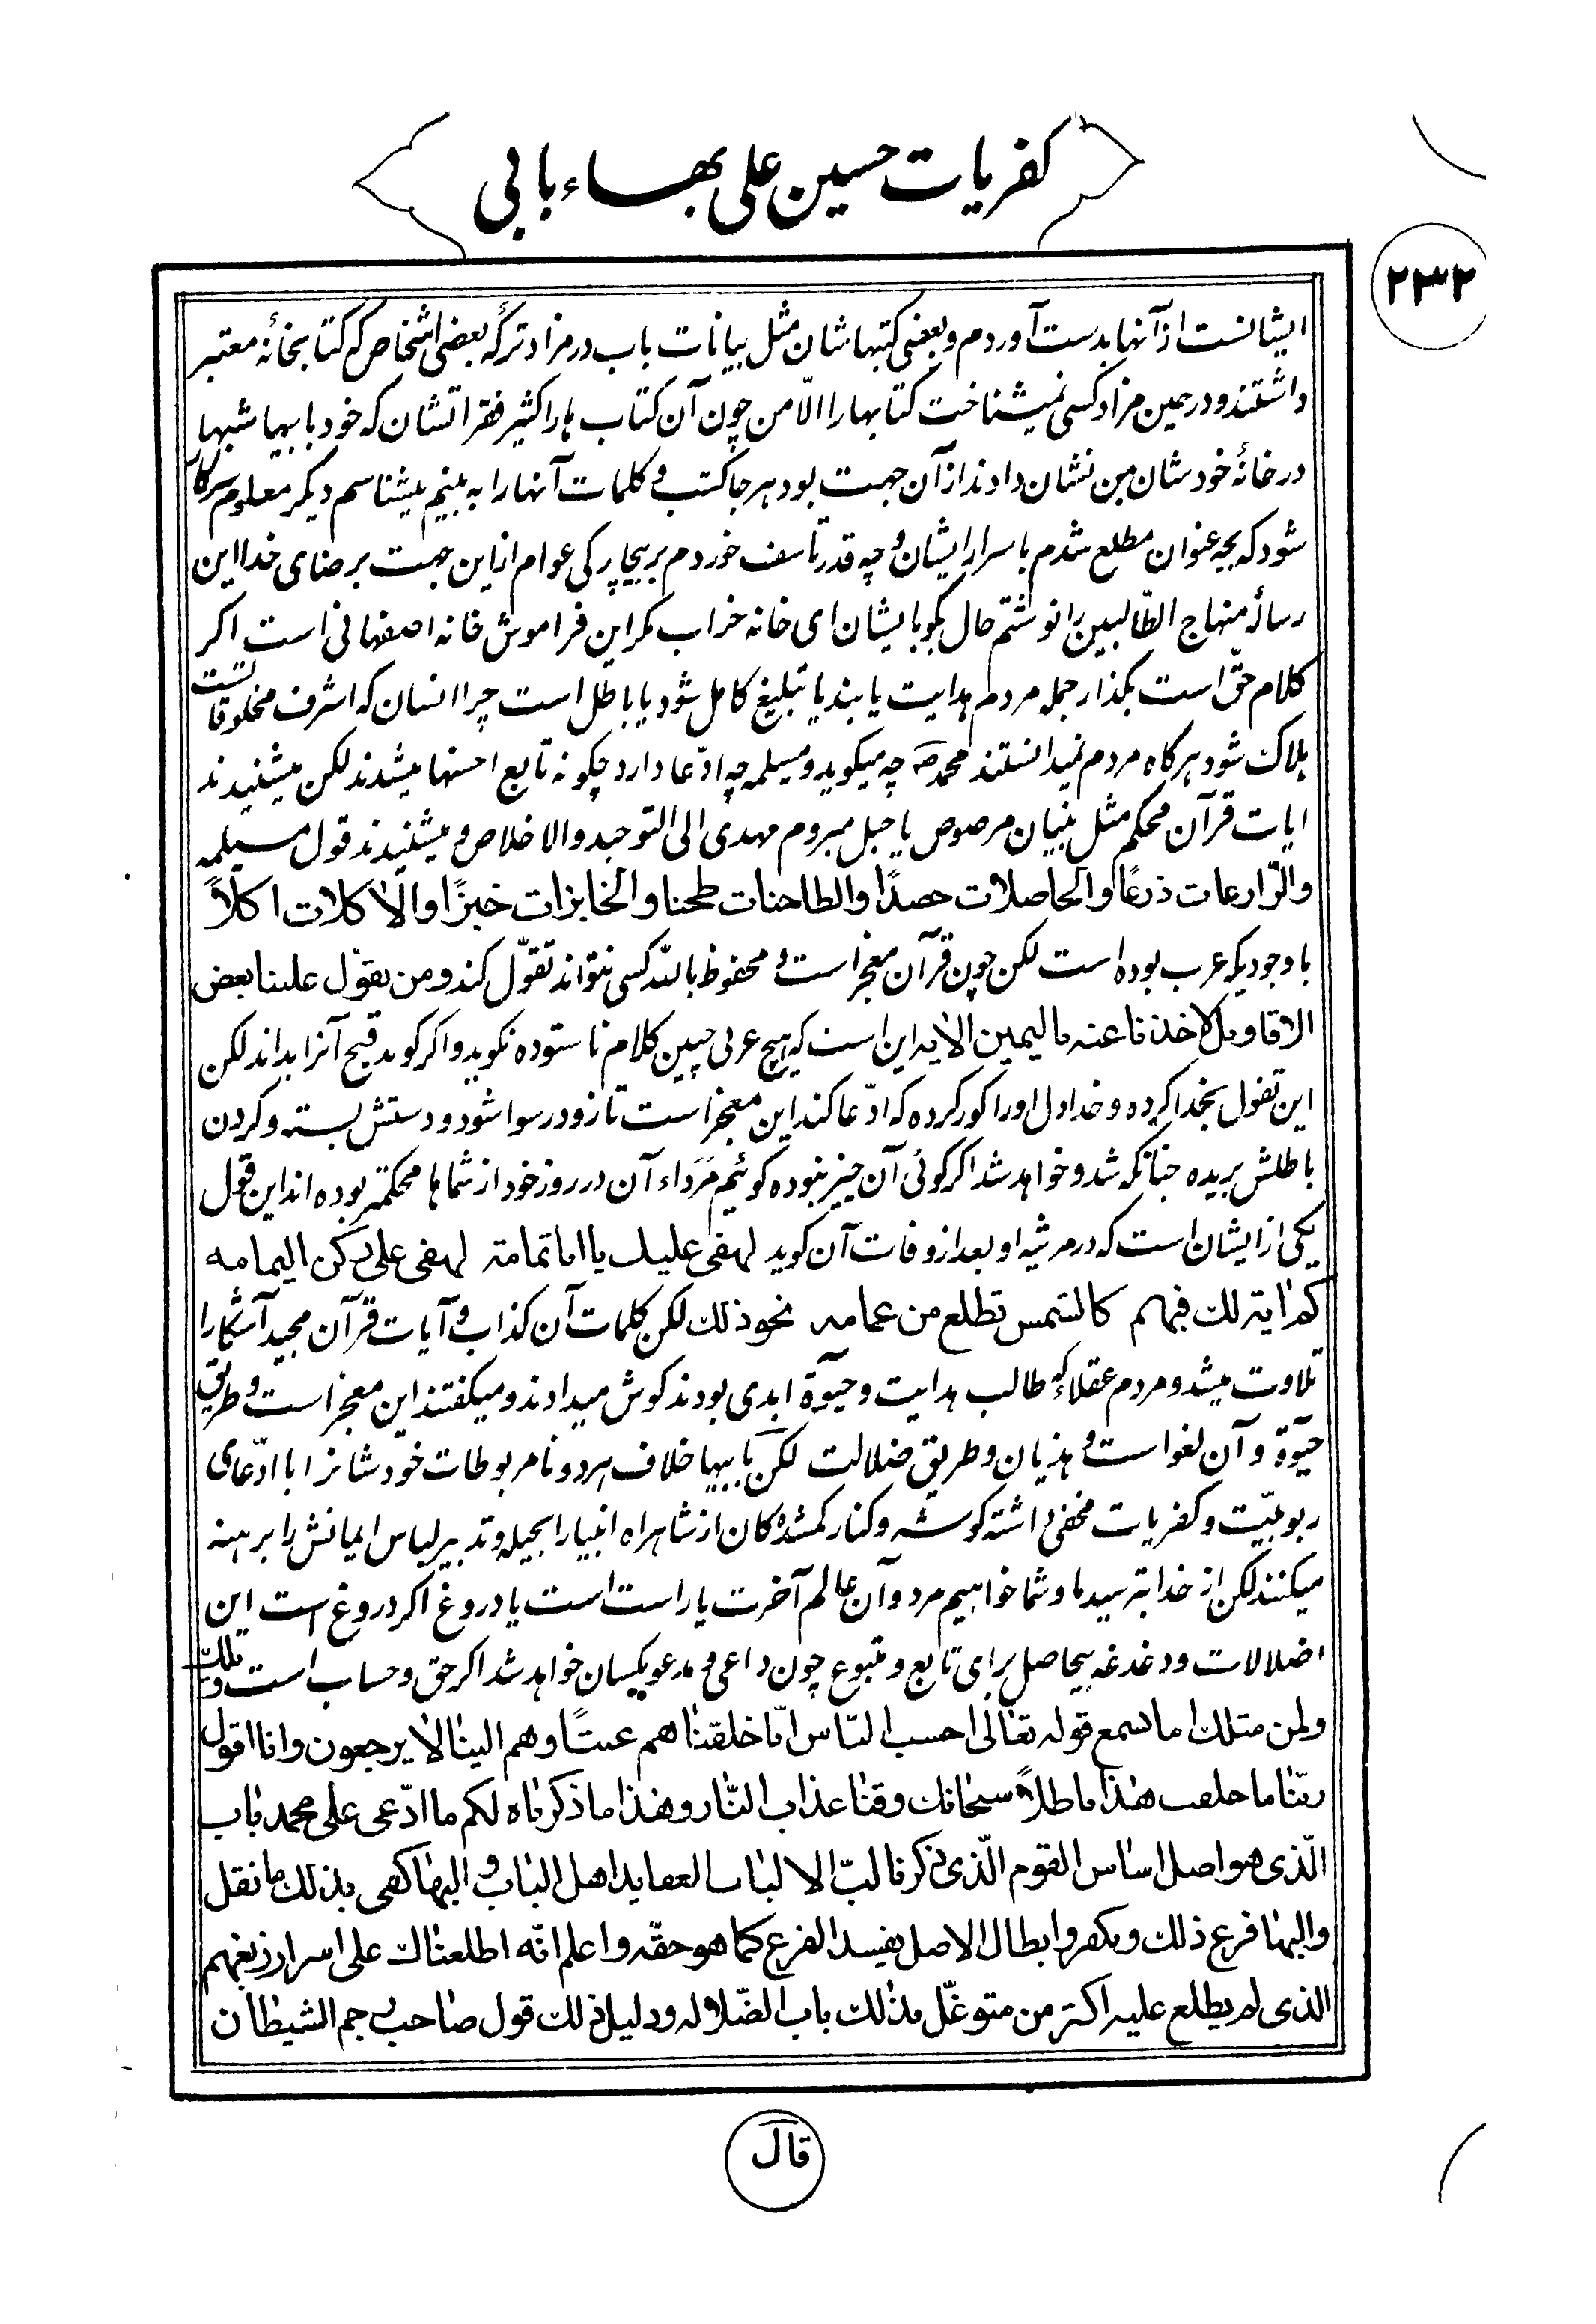 کفریات حسین علی بهاء بابی
۲۳۲
ایشانست از آنها بدست آوردم و بعضی کتبهاشان مثل بیانات باب در مزاد ترکه بعضی اشخاص که کتابخانه معتبر
داشتند و در حین مزاد کسی نمیشناخت کتابها را الّا من چون آن کتاب ها را کثیر فقراتشان که خود بابیها شبها
در خانه خودشان بمن نشان دادند از آن جهت بود هر جا کتب و کلمات آنها را به بینم میشناسم دیگر معلوم سرکار
شود که بچه عنوان مطلع شدم باسرار ایشان و چه قدر تاسف خوردم بر بیچارکی عوام از این جهت بر ضای خدا این
رساله منهاج الطّالبین را نوشتم حال بگو بایشان ای خانه خراب مکر این فراموش خانه اصفهانی است اکر
کلام حقّ است بگذار جمله مردم هدایت یابند یا تبلیغ کامل شود یا باطل است چرا انسان که اشرف مخلوقاتست
هلاک شود هرکاه مردم نمیدانستند محمد ص چه میکوید و مسیلمه چه ادّعا دارد چکونه تابع احسنها میشدند لکن میشنیدند
ایات قرآن محکم مثل بنیان مرصوص یا حبل مبروم مهدی الی التوحید والاخلاص و میشنیدند قول مسیلمه
والزّارعات ذرعًا والحاصلات حصدًا والطاحنات طحنا والخابزات خبزًا والاٰکلات اکلاً
با وجودیکه عرب بوده است لکن چون قرآن معجز است و محفوظ باللّه کسی نتواند تقوّل کند و من یقوّل علینا بعض
الاقاویل لاخذنا عنه بالیمین الایه این است که هیچ عربی چنین کلام ناستوده نکوید و اکر کوید قبح آنرا بداند لکن
این تقول بخدا کرده و خدا دل او را کور کرده که ادّعا کند این معجز است تا زود رسوا شود و دستش بسته و کردن
باطلش بریده چنانکه شد و خواهد شد اکر کوئی آن چیز نبوده کوئیم مَرداء آن در روز خود از شماها محکمتر بوده اند این قول
یکی از ایشان است که در مرثیه او بعد از وفات آن کوید لهفی علیک یا ابا تمامة لهفی علی رکن الیمامه
کم اٰیة لک فیهم کالشمس تطلع من عمامه نحو ذلک لکن کلمات آن کذاب و آیات قرآن مجید آشکارا
تلاوت میشد و مردم عقلاء که طالب هدایت و حیوة ابدی بودند کوش میدادند و میکفتند این معجز است و طریق
حیوة و آن لغو است و هذیان و طریق ضلالت لکن بابیها خلاف هر دو نامربوطات خودشانرا با ادّعای
ربوبیّت و کفریات مخفی داشته کوشه و کنار کمشده کان از شاهراه انبیا را بحیله و تدبیر لباس ایمانش را برهنه
میکنند لکن از خدا بترسید ما و شما خواهیم مرد و آن عالم آخرت یا راست است یا دروغ اکر دروغ است این
اضلالات و دغدغه بیحاصل برای تابع و متبوع چون داعی و مدعو یکسان خواهد شد اکر حق و حساب است ویلک
ولمن مثلک اما سمع قوله تعالی احسب النّاس انّا خلقناهم عبثًا وهم الینا لا یرجعون وانا اقول
ربّنا ما خلقت هٰذا باطلاً سبحانک وقنا عذاب النّار وهذا ما ذکرناه لکم ما ادّعی علی محمد باب
الّذی هو اصل اساس القوم الّذی ذکرنا لبّ الالباب العقاید اهل الباب و البها کفی بذلک ما نقل
والبها فرع ذلک و بکفر وابطال الاصل یفسد الفرع کما هو حقّه واعلم انّه اطلعناک علی اسرار زیغهم
الذی لم یطلع علیه اکثر من متوغّل بذلک باب الضّلاله ودلیل ذلک قول صاحب رجم الشیطان
قال